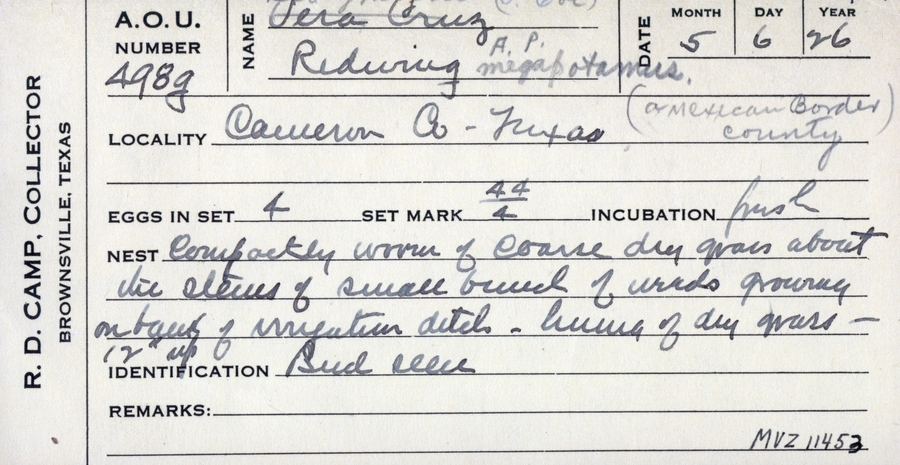 A.O.U.
NUMBER
498g
NAME
Vera Cruz
Redwing A. P.
megapotamus.
DATE
MONTH DAY YEAR
5 6 26
LOCALITY Cameron Co - Texas
(a Mexican Border
county)
EGGS IN SET 4 SET MARK 44/4 INCUBATION fresh
NEST Compactly woven of coarse dry grass about
the stems of small bunch of weeds growing
on bank of irrigation ditch - lining of dry grass —
12" up
IDENTIFICATION Bird seen
REMARKS:
MVZ 11453
R. D. CAMP, COLLECTOR
BROWNSVILLE, TEXAS